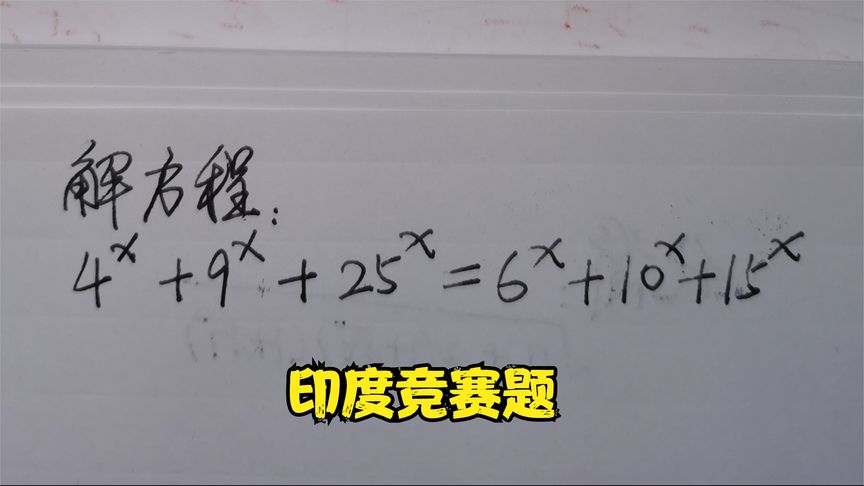 解方程:
4^x + 9^x + 25^x = 6^x + 10^x + 15^x
印度竞赛题